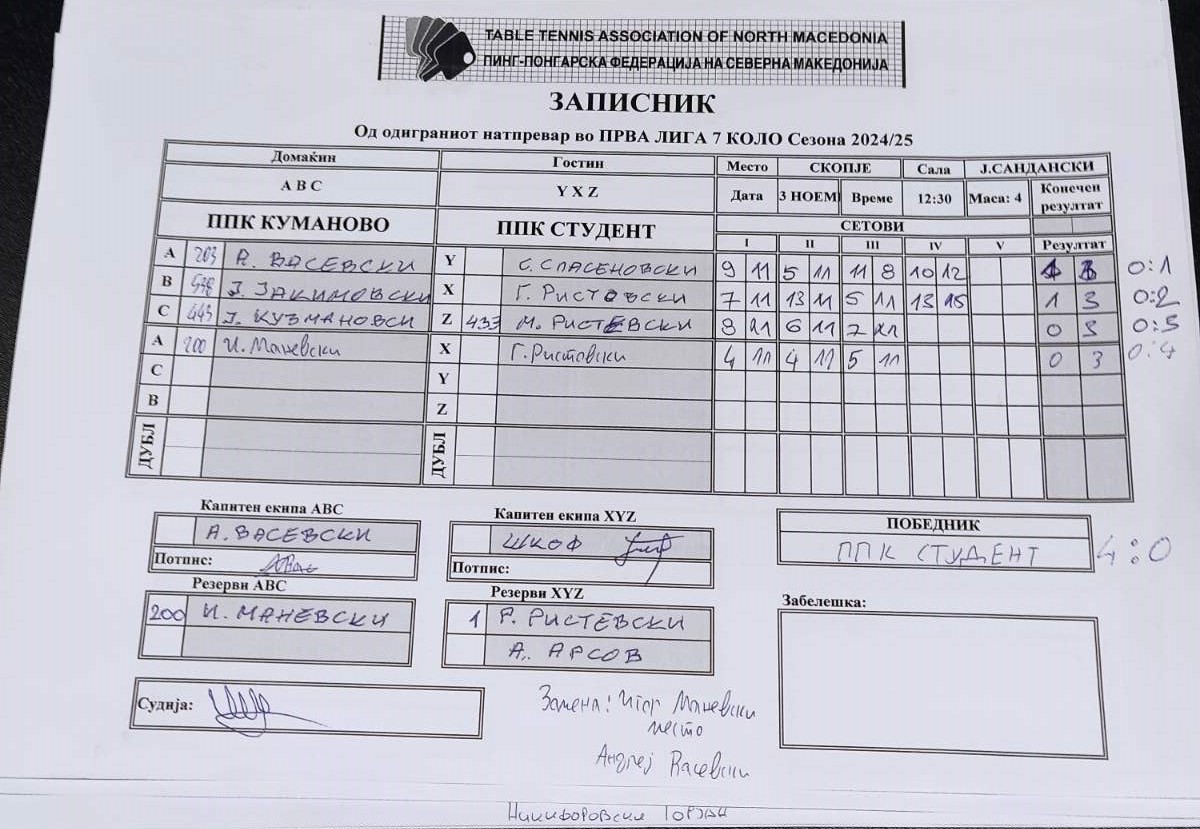 TABLE TENNIS ASSOCIATION OF NORTH MACEDONIA
ПИНГ-ПОНГАРСКА ФЕДЕРАЦИЈА НА СЕВЕРНА МАКЕДОНИЈА
ЗАПИСНИК
Од одиграниот натпревар во ПРВА ЛИГА 7 КОЛО Сезона 2024/25
Домаќин Гостин Место СКОПЈЕ Сала Ј.САНДАНСКИ
A B C Y X Z Дата 3 НОЕМ Време 12:30 Маса: 4 Конечен резултат
ППК КУМАНОВО ППК СТУДЕНТ СЕТОВИ
I II III IV V Резултат
A 203 А. ВАСЕВСКИ Y С. СПАСЕНОВСКИ 9 11 5 11 11 8 10 12 1 3 0:1
B 598 Ј. ЈАКИМОВСКИ X Г. РИСТОВСКИ 7 11 13 11 5 11 13 15 1 3 0:2
C 443 Ј. КУЗМАНОВСИ Z 433 М. РИСТЕВСКИ 8 11 6 11 7 11 0 3 0:3
A 200 И. Маневски X Г. Ристовски 4 11 4 11 5 11 0 3 0:4
C Y
B Z
ДУБЛ ДУБЛ
Капитен екипа ABC Капитен екипа XYZ ПОБЕДНИК
А. ВАСЕВСКИ ШКОФ ППК СТУДЕНТ 4:0
Потпис: Потпис:
Резерви ABC Резерви XYZ Забелешка:
200 И. МАНЕВСКИ 1 Р. РИСТЕВСКИ
А. АРСОВ
Судија:
Замена: Игор Маневски
место
Андреј Васевски
Никифоровски